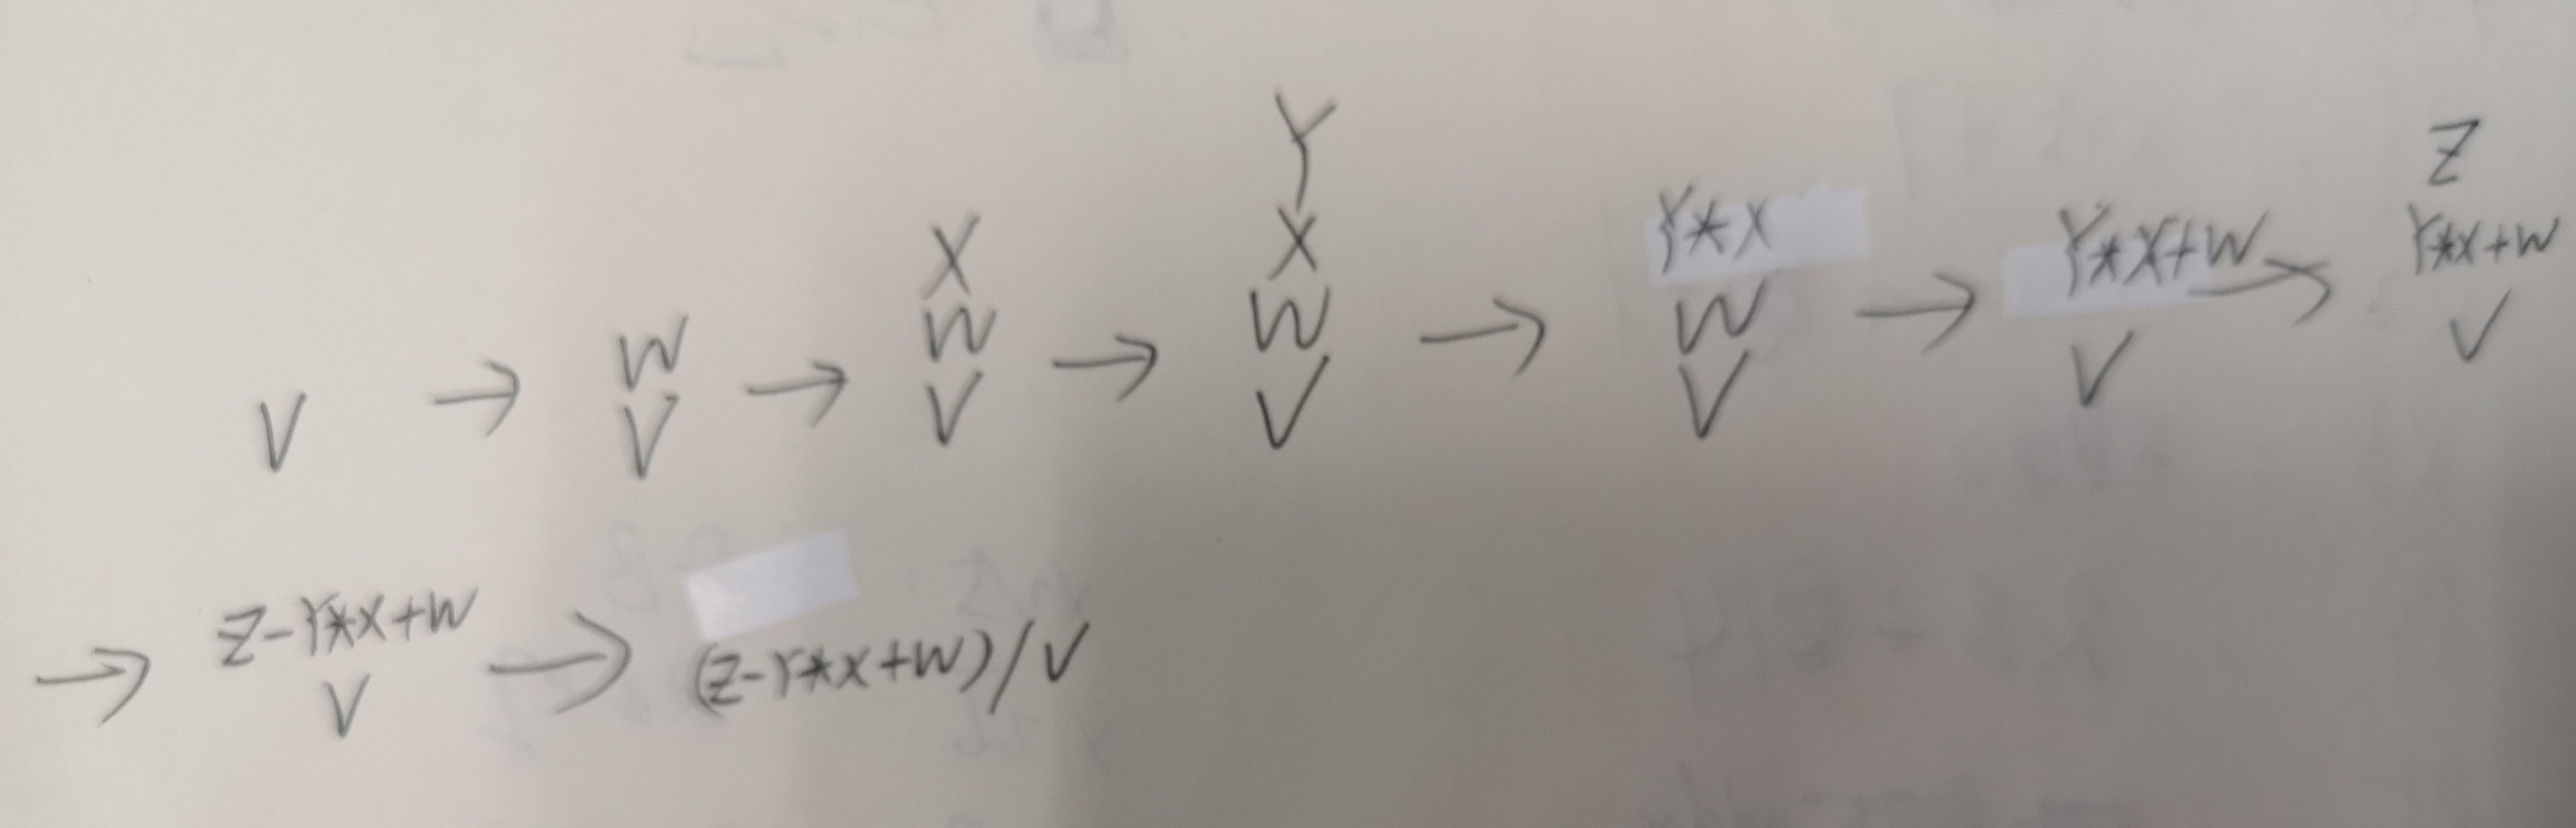 V → W V → X W V → Y X W V → Y*X W V → Y*X+W V → Z Y*X+W V
→ Z-Y*X+W V → (Z-Y*X+W)/V